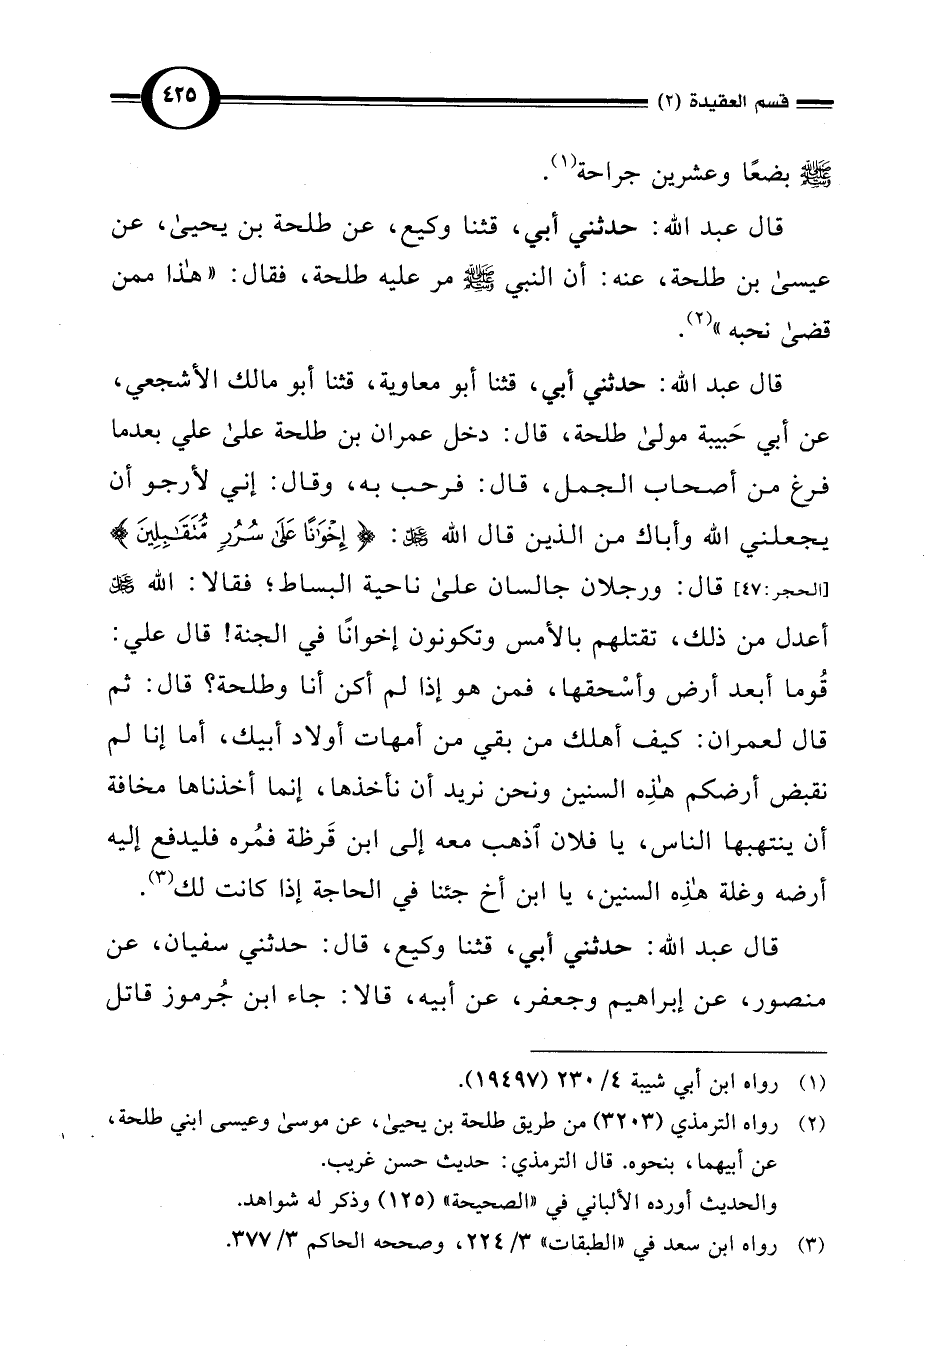 قسم العقيدة (٢) ٤٢٥
ﷺ بضعًا وعشرين جراحة(١).
قال عبد الله: حدثني أبي، قثنا وكيع، عن طلحة بن يحيىٰ، عن
عيسىٰ بن طلحة، عنه: أن النبي ﷺ مر عليه طلحة، فقال: «هذا ممن
قضىٰ نحبه»(٢).
قال عبد الله: حدثني أبي، قثنا أبو معاوية، قثنا أبو مالك الأشجعي،
عن أبي حَبيبة مولىٰ طلحة، قال: دخل عمران بن طلحة علىٰ علي بعدما
فرغ من أصحاب الجمل، قال: فرحب به، وقال: إني لأرجو أن
يجعلني الله وأباك من الذين قال الله ﷻ: ﴿إِخْوَٰنًا عَلَىٰ سُرُرٍ مُّتَقَٰبِلِينَ﴾
[الحجر:٤٧] قال: ورجلان جالسان علىٰ ناحية البساط؛ فقالا: الله ﷻ
أعدل من ذلك، تقتلهم بالأمس وتكونون إخوانًا في الجنة! قال علي:
قُوما أبعد أرض وأسْحقها، فمن هو إذا لم أكن أنا وطلحة؟ قال: ثم
قال لعمران: كيف أهلك من بقي من أمهات أولاد أبيك، أما إنا لم
نقبض أرضكم هٰذِه السنين ونحن نريد أن نأخذها، إنما أخذناها مخافة
أن ينتهبها الناس، يا فلان ٱذهب معه إلى ابن قَرظة فمُره فليدفع إليه
أرضه وغلة هٰذِه السنين، يا ابن أخ جئنا في الحاجة إذا كانت لك(٣).
قال عبد الله: حدثني أبي، قثنا وكيع، قال: حدثني سفيان، عن
منصور، عن إبراهيم وجعفر، عن أبيه، قالا: جاء ابن جُرموز قاتل
(١) رواه ابن أبي شيبة ٤/ ٢٣٠ (١٩٤٩٧).
(٢) رواه الترمذي (٣٢٠٣) من طريق طلحة بن يحيىٰ، عن موسىٰ وعيسى ابني طلحة،
عن أبيهما، بنحوه. قال الترمذي: حديث حسن غريب.
والحديث أورده الألباني في «الصحيحة» (١٢٥) وذكر له شواهد.
(٣) رواه ابن سعد في «الطبقات» ٣/ ٢٢٤، وصححه الحاكم ٣/ ٣٧٧.